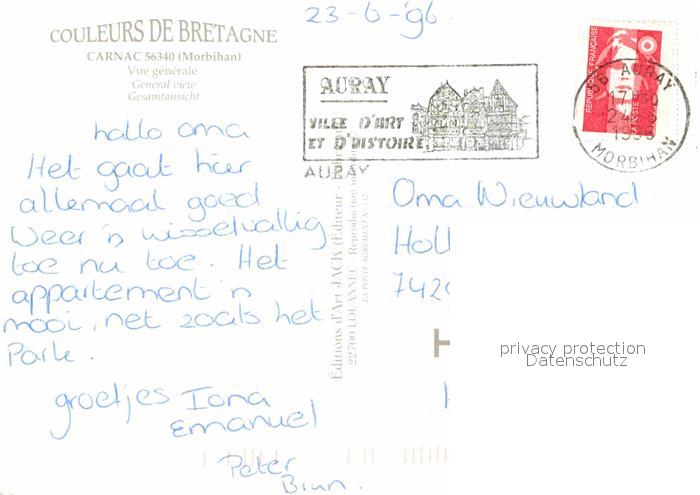 COULEURS DE BRETAGNE
CARNAC 56340 (Morbihan)
Vue générale
General view
Gesamtansicht
23-6-'96
hallo oma
Het gaat hier
allemaal goed
Weer 'n wisselvallig
toe nu toe. Het
appartement 'n
mooi, net zoals het
Park.
groetjes Iona
Emanuel
Peter
Brun.
Éditions d'Art JACK (Éditeur -
22700 LOUANNEC - Reproduction
LA POSTE AGREMENT N° 112
AURAY
VILLE D'ART
ET D'HISTOIRE
AURAY
RÉPUBLIQUE FRANÇAISE
LA POSTE
56 AURAY
1996
MORBIHAN
Oma Nieuwland
Holl
742
privacy protection
Datenschutz